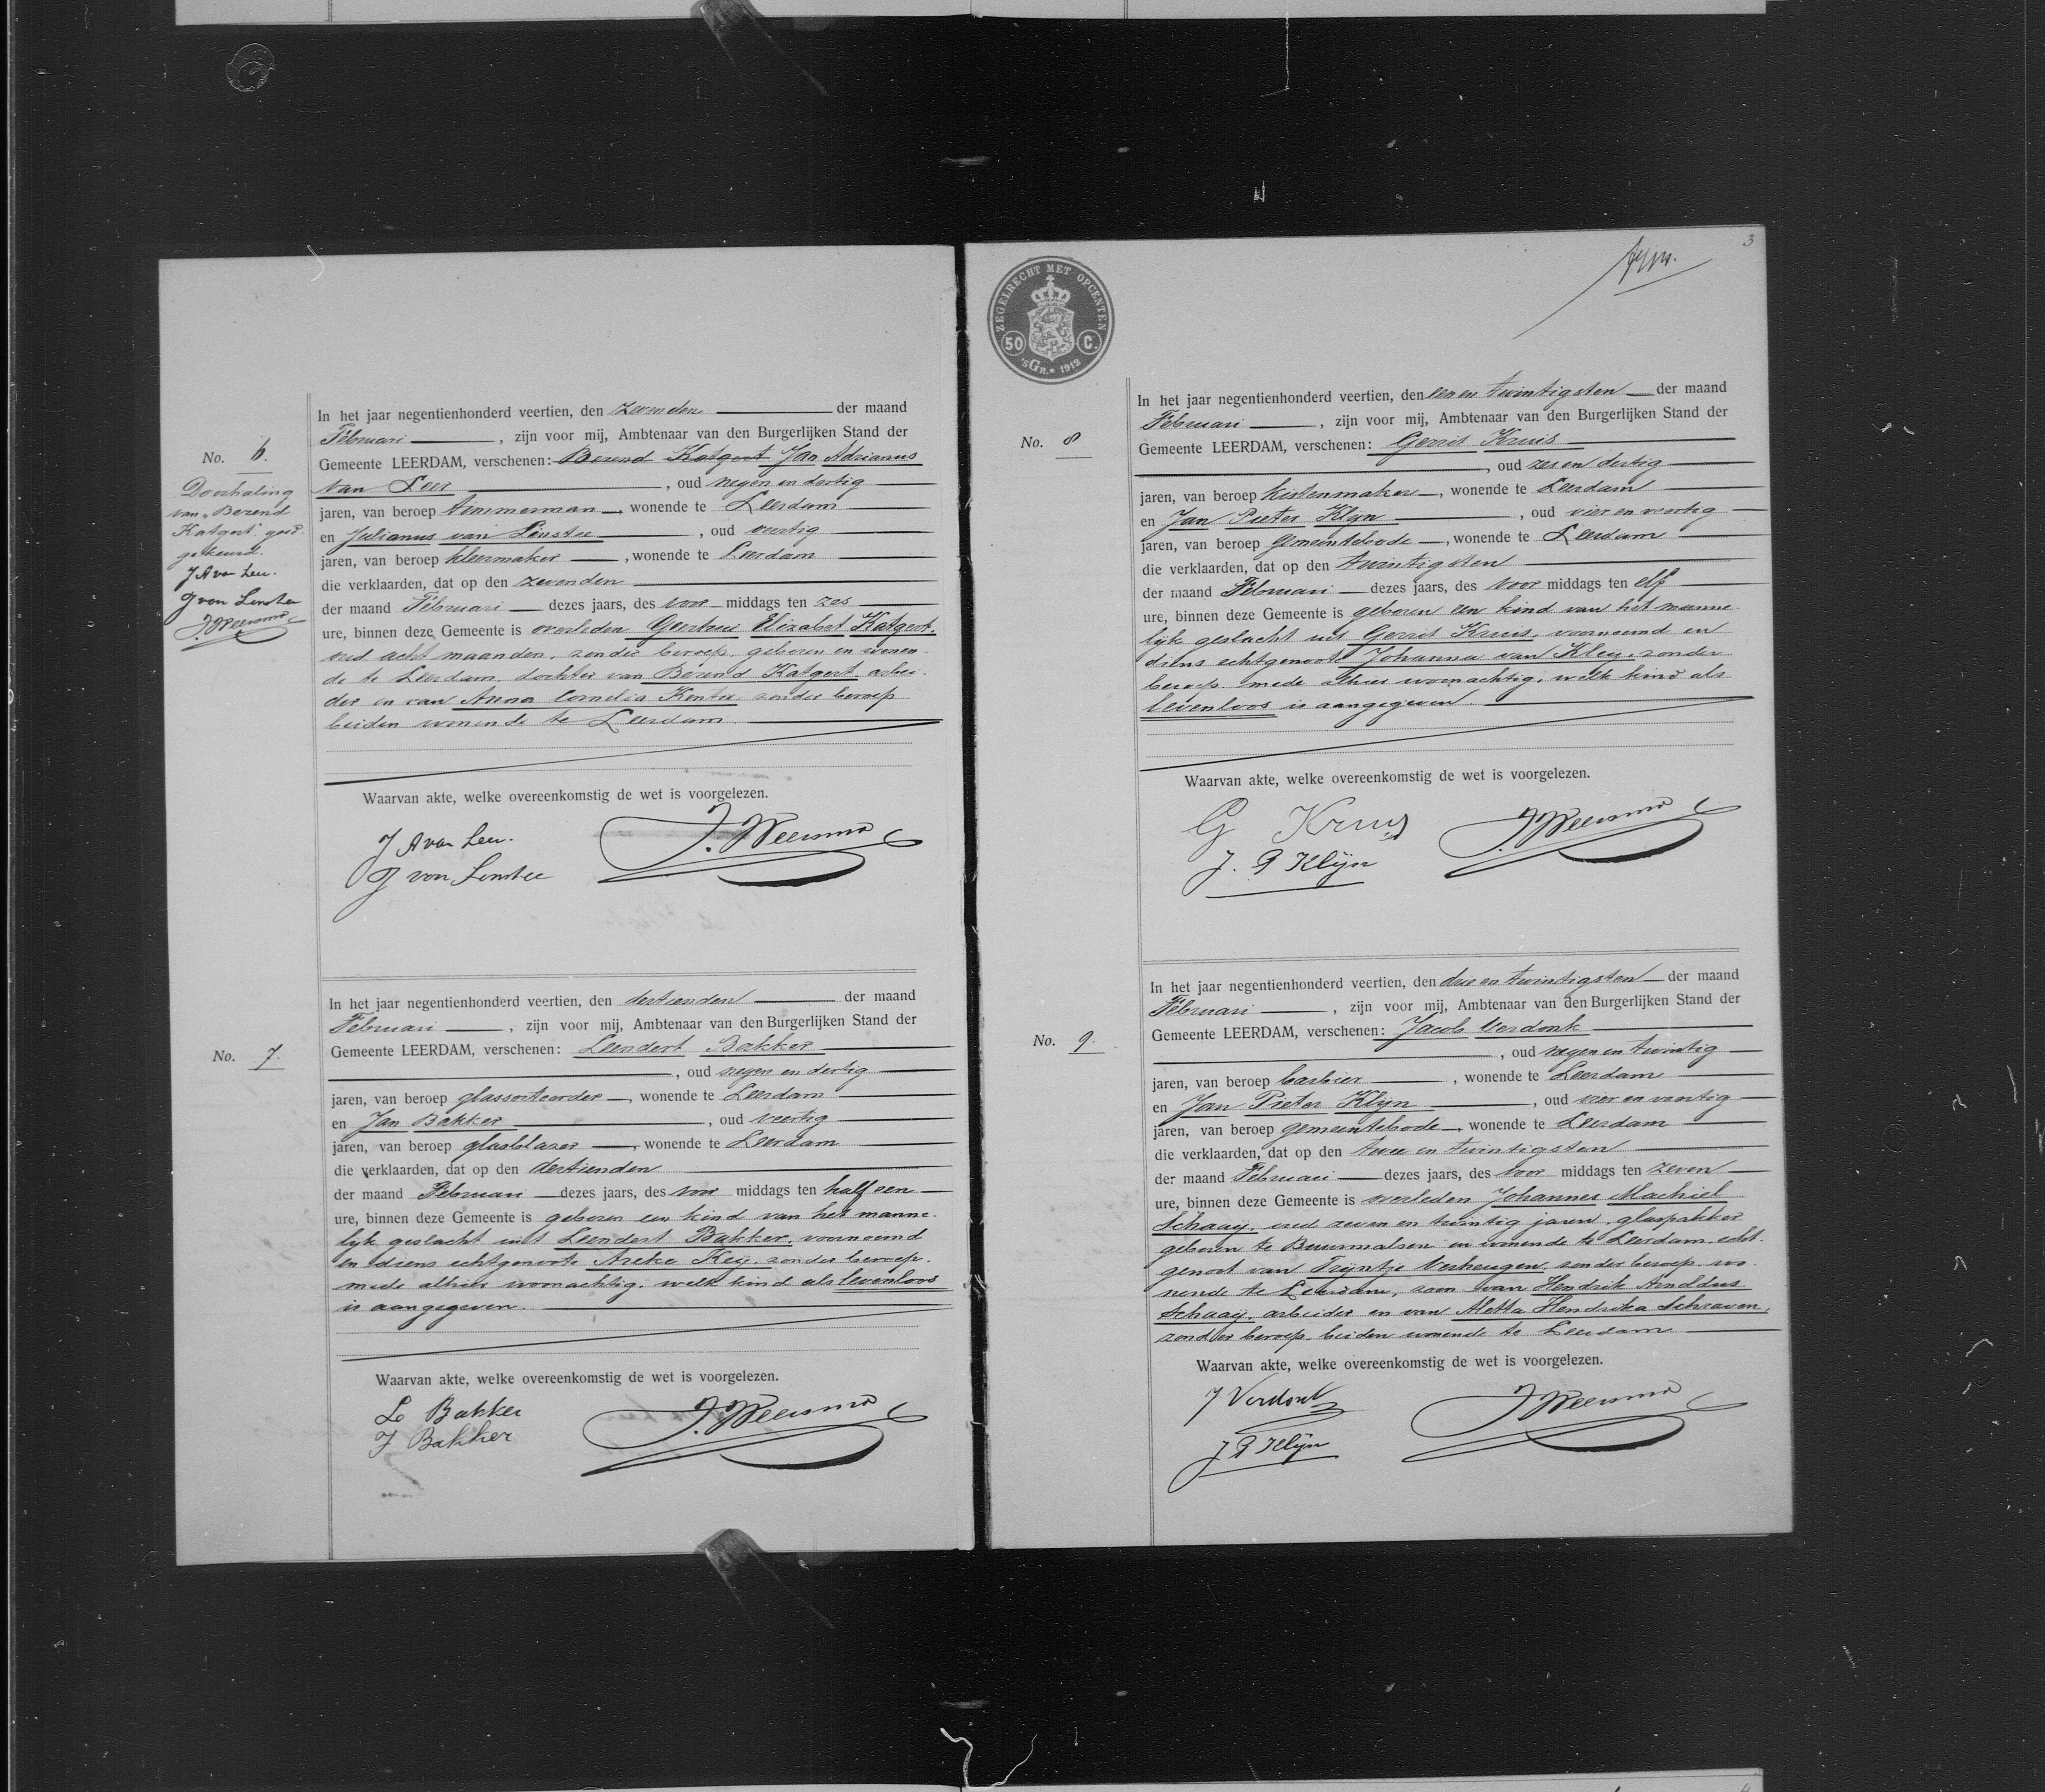 No. 6.
Doorhaling
van "Berend
Katgert" goed
gekeurd.
J A van Leer.
J van Linstee
J. Weersma
In het jaar negentienhonderd veertien, den zevenden der maand
Februari, zijn voor mij, Ambtenaar van den Burgerlijken Stand der
Gemeente LEERDAM, verschenen: Berend Katgert Jan Adrianus
van Leer, oud negen en dertig
jaren, van beroep timmerman, wonende te Leerdam
en Julianus van Linstee, oud veertig
jaren, van beroep kleermaker, wonende te Leerdam
die verklaarden, dat op den zevenden
der maand Februari dezes jaars, des voor middags ten zes
ure, binnen deze Gemeente is overleden Geertrui Elizabet Katgert,
oud acht maanden, zonder beroep, geboren en wonen-
de te Leerdam, dochter van Berend Katgert, arbei-
der en van Anna Cornelia Kentie, zonder beroep
beiden wonende te Leerdam
Waarvan akte, welke overeenkomstig de wet is voorgelezen.
J A van Leer.
J van Linstee
J. Weersma
No. 7.
In het jaar negentienhonderd veertien, den dertienden der maand
Februari, zijn voor mij, Ambtenaar van den Burgerlijken Stand der
Gemeente LEERDAM, verschenen: Leendert Bakker
, oud negen en dertig
jaren, van beroep glassorteerder, wonende te Leerdam
en Jan Bakker, oud veertig
jaren, van beroep glasblazer, wonende te Leerdam
die verklaarden, dat op den dertienden
der maand Februari dezes jaars, des voor middags ten half een
ure, binnen deze Gemeente is geboren een kind van het manne-
lijk geslacht uit Leendert Bakker, voornoemd
en diens echtgenoote Areke Key, zonder beroep,
mede alhier woonachtig, welk kind als levenloos
is aangegeven.
Waarvan akte, welke overeenkomstig de wet is voorgelezen.
L Bakker
J Bakker
J. Weersma
3
ZEGELRECHT MET OPCENTEN
50 C.
'sGR. 1912
No. 8
In het jaar negentienhonderd veertien, den een en twintigsten der maand
Februari, zijn voor mij, Ambtenaar van den Burgerlijken Stand der
Gemeente LEERDAM, verschenen: Gerrit Kruis
, oud zes en dertig
jaren, van beroep kistenmaker, wonende te Leerdam
en Jan Pieter Klijn, oud vier en veertig
jaren, van beroep gemeentebode, wonende te Leerdam
die verklaarden, dat op den twintigsten
der maand Februari dezes jaars, des voor middags ten elf
ure, binnen deze Gemeente is geboren een kind van het manne-
lijk geslacht uit Gerrit Kruis, voornoemd en
diens echtgenoote Johanna van Kleu, zonder
beroep, mede alhier woonachtig, welk kind als
levenloos is aangegeven.
Waarvan akte, welke overeenkomstig de wet is voorgelezen.
G Kruis
J. P Klijn
J. Weersma
No. 9.
In het jaar negentienhonderd veertien, den drie en twintigsten der maand
Februari, zijn voor mij, Ambtenaar van den Burgerlijken Stand der
Gemeente LEERDAM, verschenen: Jacob Verdonk
, oud negen en twintig
jaren, van beroep barbier, wonende te Leerdam
en Jan Pieter Klijn, oud vier en veertig
jaren, van beroep gemeentebode, wonende te Leerdam
die verklaarden, dat op den twee en twintigsten
der maand Februari dezes jaars, des voor middags ten zeven
ure, binnen deze Gemeente is overleden Johannes Machiel
Schaaij, oud zeven en twintig jaren, glaspakker
geboren te Buurmalsen en wonende te Leerdam, echt-
genoot van Trijntje Verheugen, zonder beroep, wo-
nende te Leerdam, zoon van Hendrik Arnoldus
Schaaij, arbeider en van Aletta Hendrika Schraven,
zonder beroep, beiden wonende te Leerdam
Waarvan akte, welke overeenkomstig de wet is voorgelezen.
J Verdonk
J P Klijn
J Weersma
4